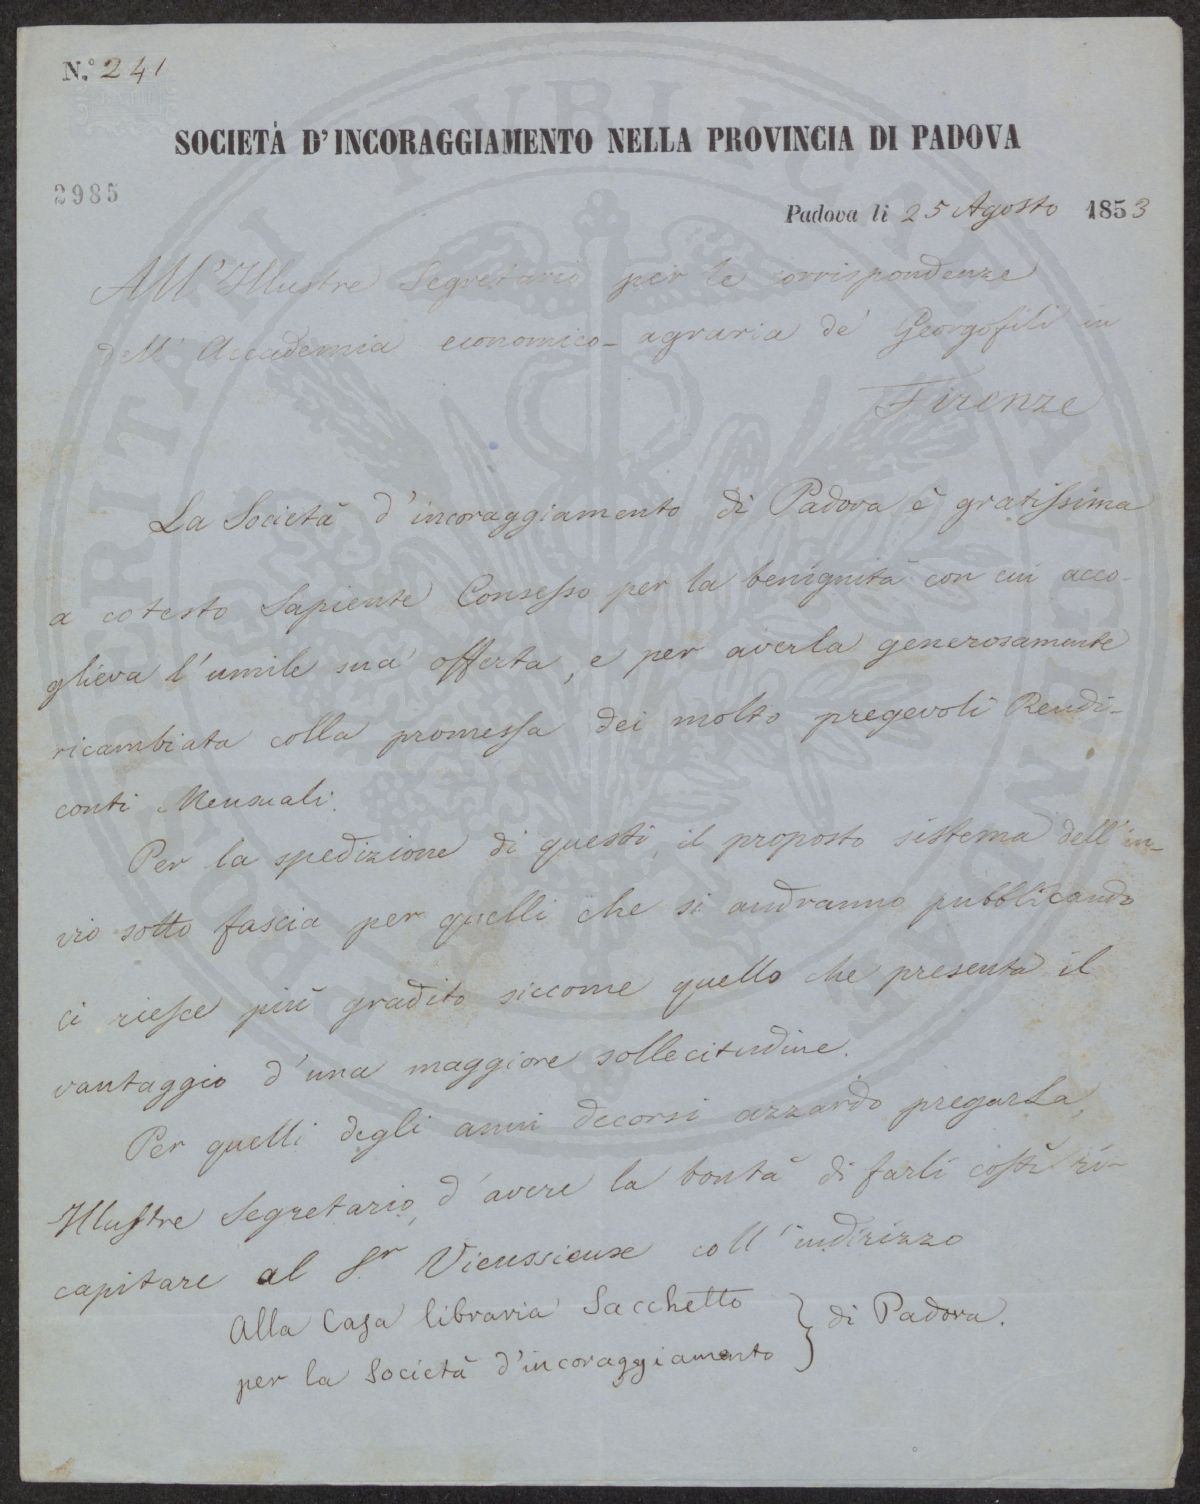 N.º 241
SOCIETÀ D'INCORAGGIAMENTO NELLA PROVINCIA DI PADOVA
2985
Padova li 25 Agosto 1853
All'Illustre Segretario per le corrispondenze
dell'Accademia economico-agraria de' Georgofili in
Firenze
La Società d'incoraggiamento di Padova è gratissima
a cotesto Sapiente Consesso per la benignità con cui acco-
glieva l'umile sua offerta, e per averla generosamente
ricambiata colla promessa dei molto pregevoli Rendi-
conti Mensuali.
Per la spedizione di questi, il proposto sistema dell'in-
vio sotto fascia per quelli che si andranno pubblicando
ci riesce più gradito siccome quello che presenta il
vantaggio d'una maggiore sollecitudine.
Per quelli degli anni decorsi azzardo pregarLa,
Illustre Segretario, d'avere la bontà di farli costì ri-
capitare al Sr Vieussieux coll'indirizzo
Alla Casa libraria Sacchetto } di Padova.
per la Società d'incoraggiamento
PROSPERITATI PUBLICAE AUGENDAE